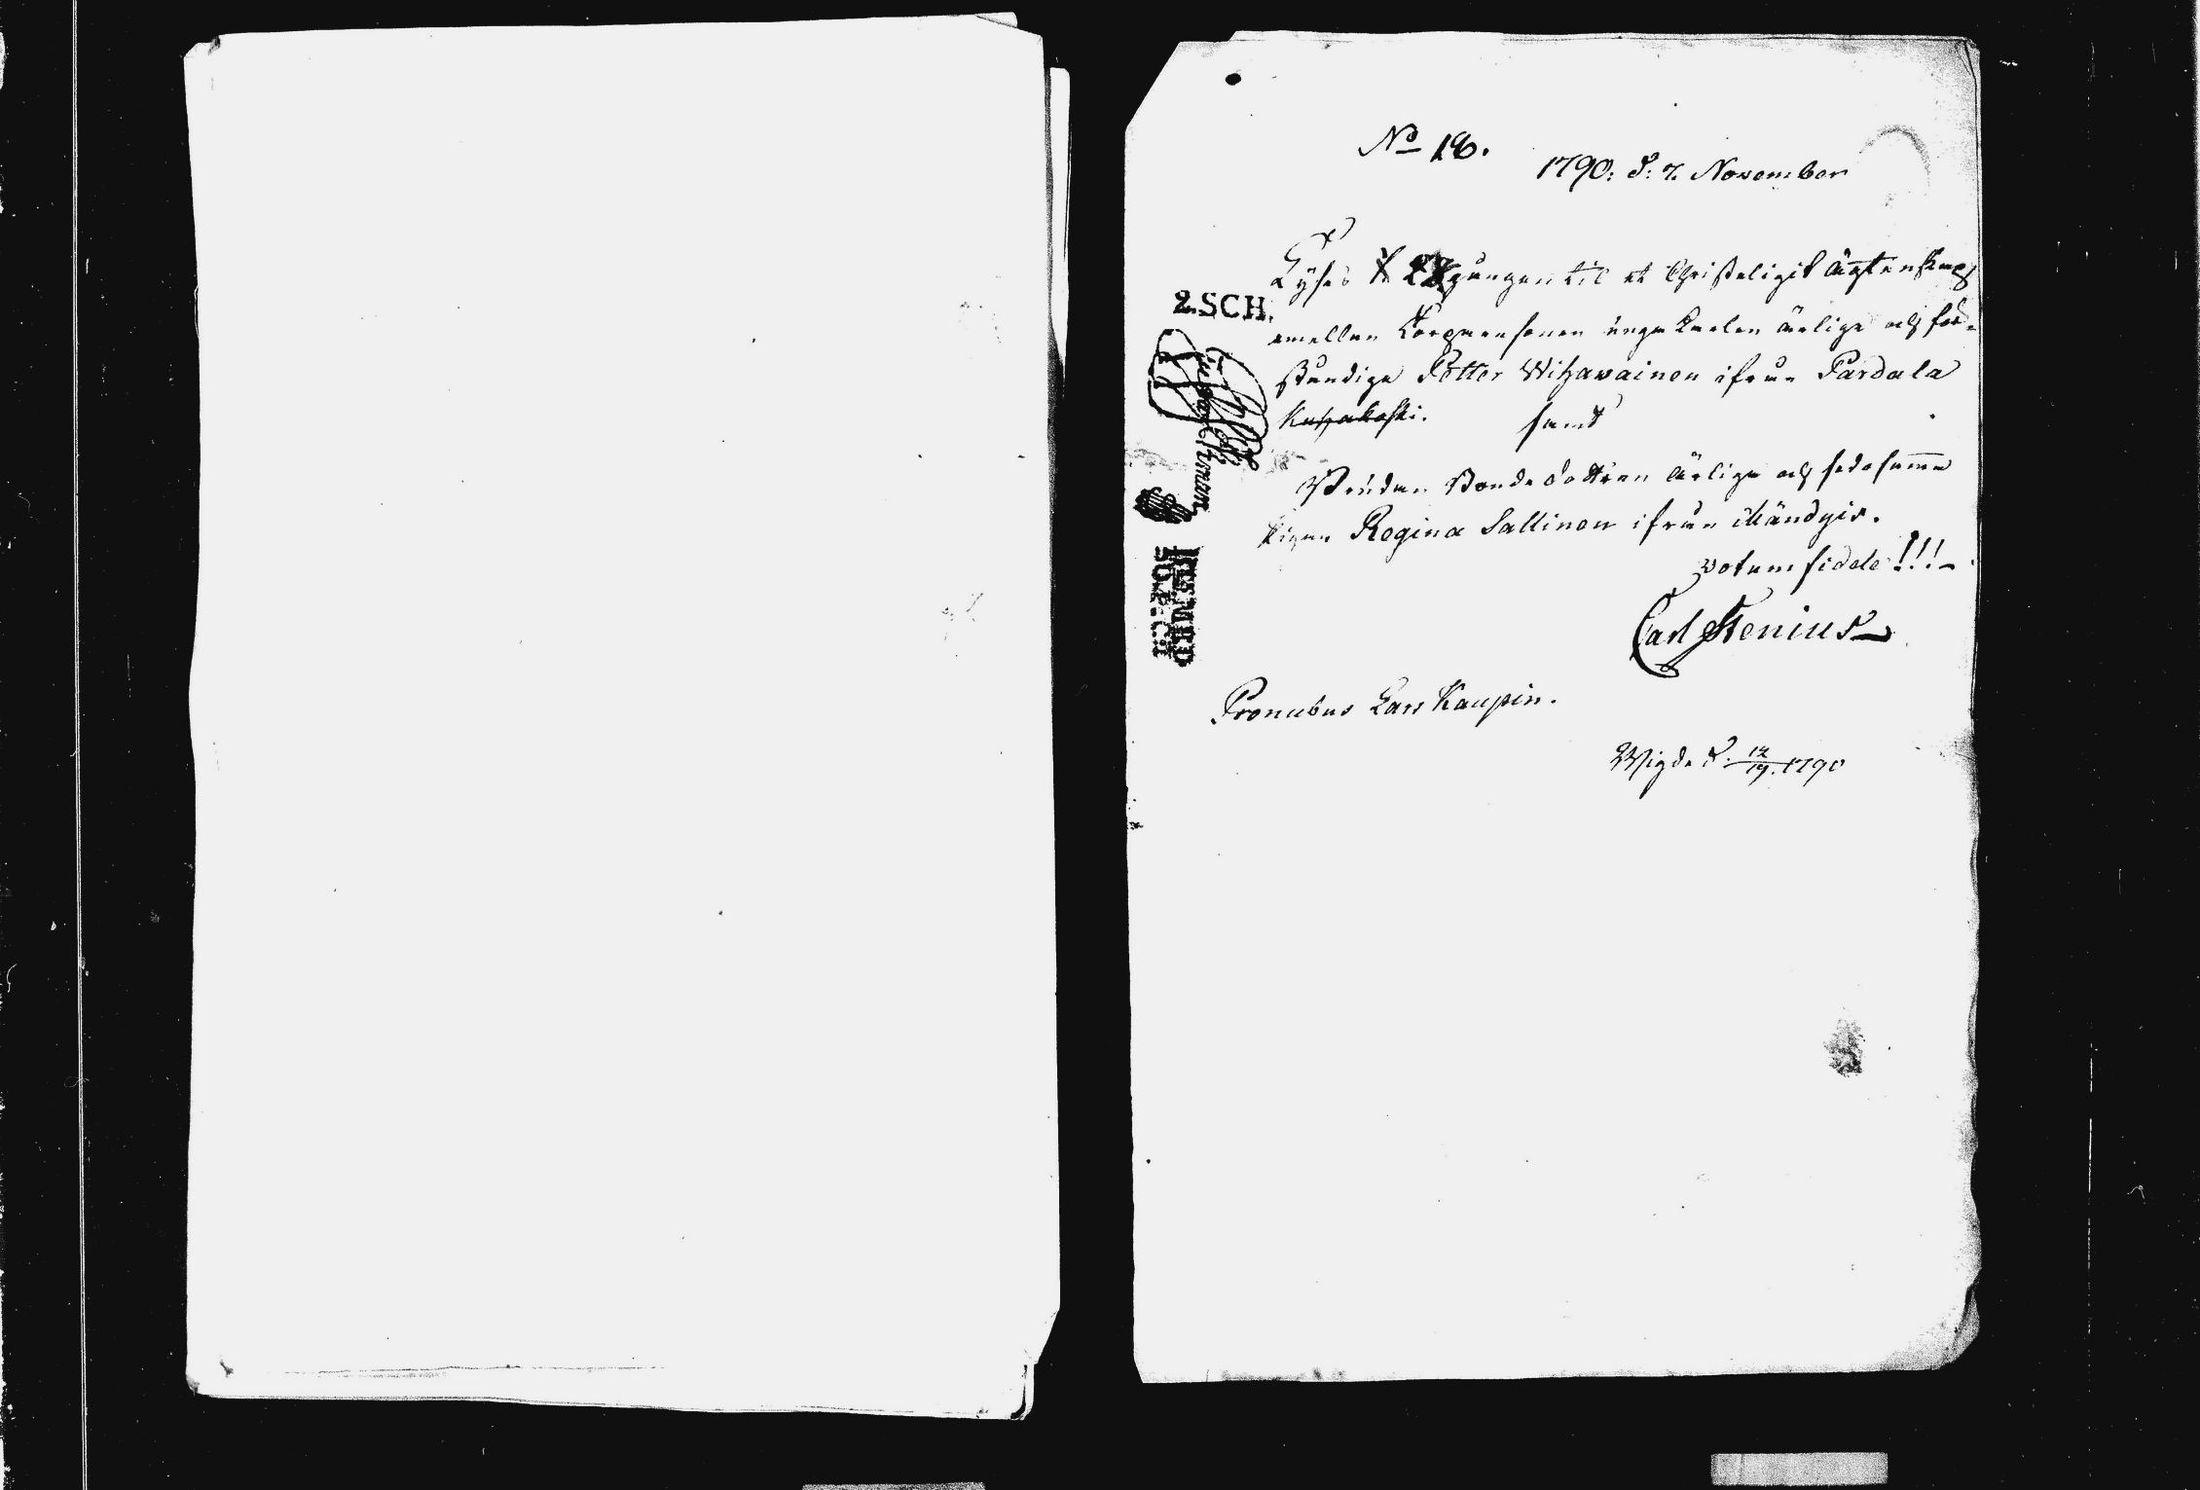 No 18.
1790: d: 7. November
Lyses gången til et Christeligit ägtenskap
2.SCH.
emellan unga Karlen ärlige och för-
ståndige Petter Wihavainen ifrån Pardala
samt
Bruden Bonde dottren ärliga och sedesamma
Pigan Regina Sallinen ifrån Mändyis.
votum fidele!!!
Carl Stenius
Pronubus Lars Kaupin.
Wigde d: 12/19. 1790